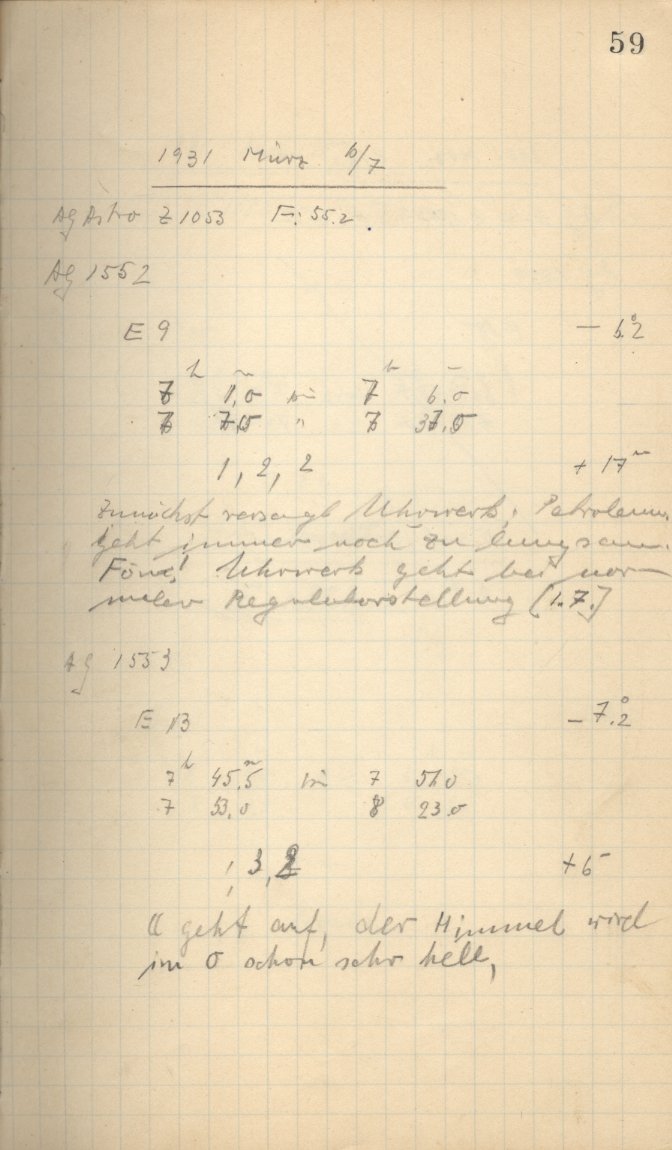 59
1931 März 6/7
Ag Astro Z 1053 F: 55.2
Ag 1552
E 9 − 6.°2
7ʰ 1,0ᵐ bis 7ʰ 6.0
7 7,0 " 7 37.5
1, 2, 2 + 17ᵐ
Zunächst versagt Uhrwerk, Petroleum
geht immer noch zu langsam.
Uhrwerk geht bei nor-
maler Regulatorstellung [1.7.]
Ag 1553
E 13 − 7.°2
7ʰ 45.5ᵐ bis 7 51.0
7 53,0 8 23.0
1, 3, 2 + 6
☾ geht auf, der Himmel wird
im O schon sehr hell,